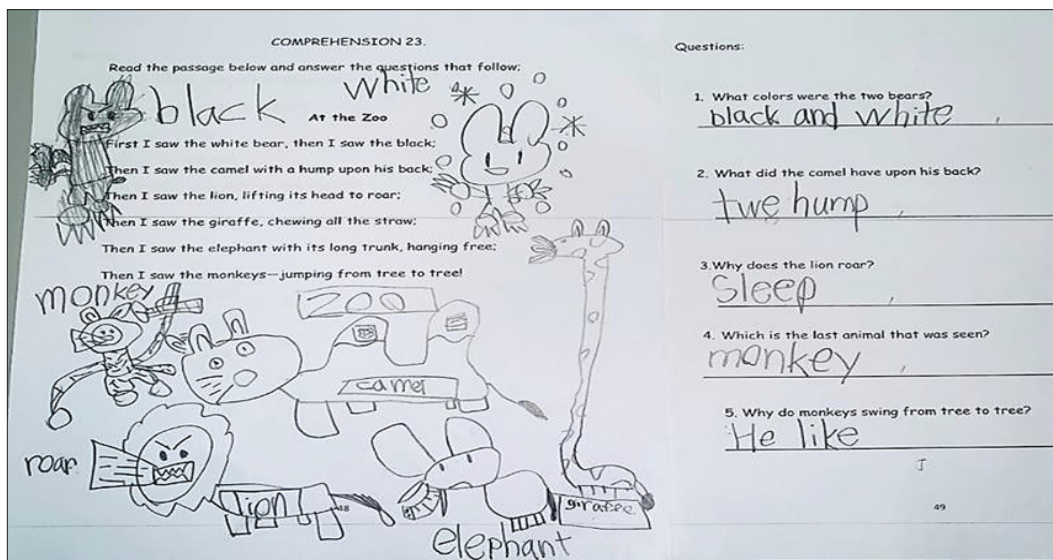 COMPREHENSION 23.
Read the passage below and answer the questions that follow;
black
white
At the Zoo
First I saw the white bear, then I saw the black;
Then I saw the camel with a hump upon his back;
Then I saw the lion, lifting its head to roar;
Then I saw the giraffe, chewing all the straw;
Then I saw the elephant with its long trunk, hanging free;
Then I saw the monkeys—jumping from tree to tree!
monkey
ZOO
camel
roar
lion
elephant
giraffe
48
Questions:
1. What colors were the two bears?
black and white
2. What did the camel have upon his back?
twe hump
3.Why does the lion roar?
Sleep
4. Which is the last animal that was seen?
monkey
5. Why do monkeys swing from tree to tree?
He like
49